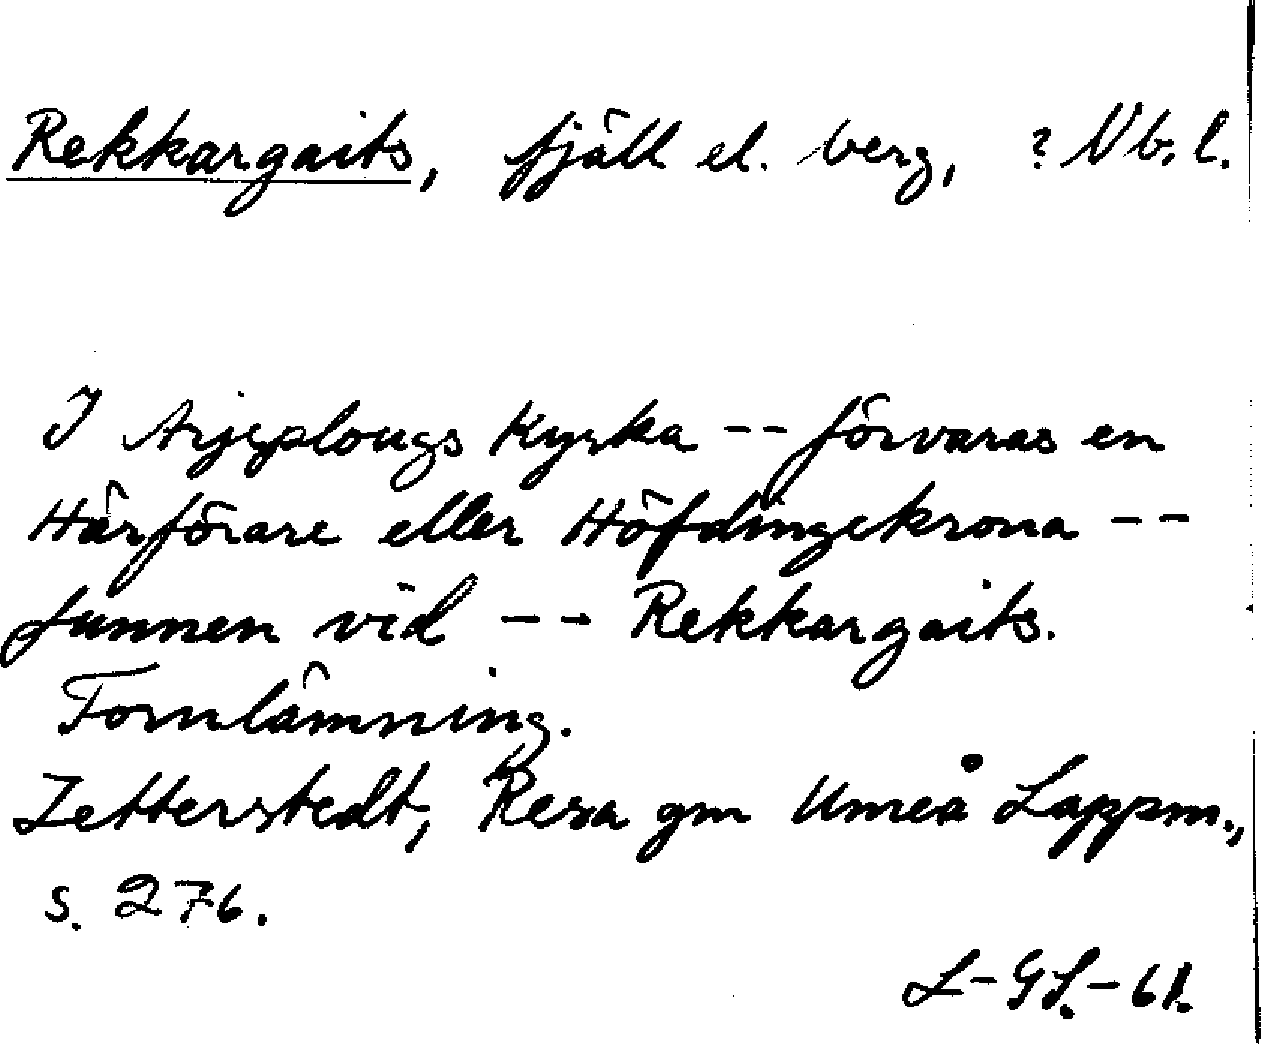 Rekkargaits, fjäll el. berg, ? Vb. l.
I Arjeplougs Kyrka -- förvaras en
Härförare eller Höfdingekrona --
funnen vid -- Rekkargaits.
Fornlämning.
Zetterstedt, Resa gm Umeå Lappm.,
s. 276.
L-GS.-61.